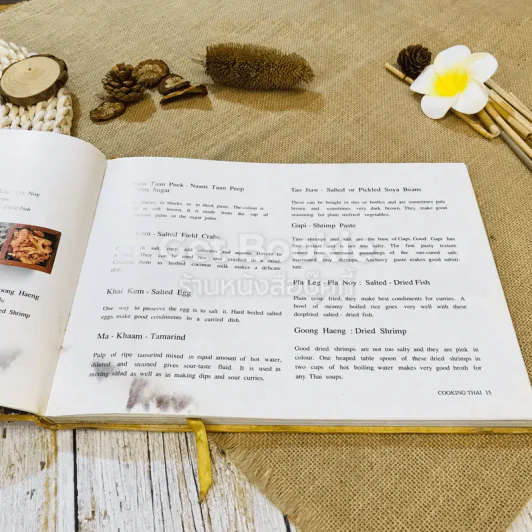 Noy
Dried Fish
Goong Haeng
Dried Shrimp
Taan Puek - Naam Taan Peep
Sugar
in blocks or in thick paste. The colour is
brown. It is made from the sap of
palm or the sugar palm.
- Salted Field Crabs
Khai Kem - Salted Egg
One way to preserve the egg is to salt it. Hard boiled salted
eggs make good condiments to a curried dish.
Ma - Khaam - Tamarind
Pulp of ripe tamarind mixed in equal amount of hot water,
diluted and strained gives sour-taste fluid. It is used in
mixing salad as well as in making dips and sour curries.
Tao Jiaw - Salted or Pickled Soya Beans
These can be bought in tins or bottles and are sometimes pale
brown and sometimes very dark brown. They make good
seasoning for plain stirfried vegetables.
Gapi - Shrimp Paste
Tiny shrimps and salt are the base of Gapi. Good Gapi has
texture and is not too salty. The first pasty texture
of the sun-used salt-
tiny shrimps. Anchovy paste makes good substi-
tute.
Pla Leg - Pla Noy : Salted - Dried Fish
Plain crisp fried, they make best condiments for curries. A
bowl of steamy boiled rice goes very well with these
deepfried salted - dried fish.
Goong Haeng : Dried Shrimp
Good dried shrimps are not too salty and they are pink in
colour. One heaped table spoon of these dried shrimps in
two cups of hot boiling water makes very good broth for
any Thai soups.
COOKING THAI 15
ร้านหนังสือบุ๊คกี้